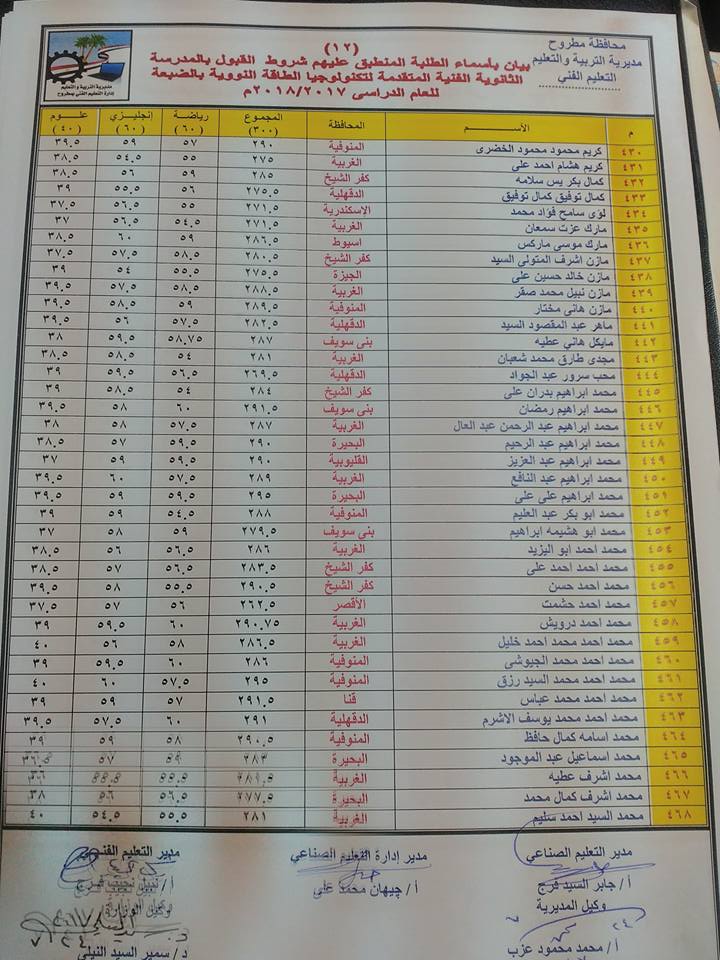 محافظة مطروح
مديرية التربية والتعليم
التعليم الفني
(١٢)
بيان بأسماء الطلبة المنطبق عليهم شروط القبول بالمدرسة
الثانوية الفنية المتقدمة لتكنولوجيا الطاقة النووية بالضبعة
للعام الدراسى ٢٠١٨/٢٠١٧م
مديرية التربية والتعليم
إدارة التعليم الفني بمطروح
م الأســـــم المحافظة المجموع (٣٠٠) رياضة (٦٠) إنجليزي (٦٠) علـوم (٤٠)
٤٣٠ كريم محمود محمود الخضرى المنوفية ٢٩٠ ٥٧ ٥٩ ٣٩.٥
٤٣١ كريم هشام احمد على الغربية ٢٧٥ ٥٥ ٥٤.٥ ٣٨.٥
٤٣٢ كمال بكر يس سلامه كفر الشيخ ٢٨٥ ٥٩ ٥٦ ٣٨.٥
٤٣٣ كمال توفيق كمال توفيق الدقهلية ٢٧٥.٥ ٥٦ ٥٥.٥ ٣٩
٤٣٤ لؤى سامح فؤاد محمد الإسكندرية ٢٧١.٥ ٥٥ ٥٦.٥ ٣٧.٥
٤٣٥ مارك عزت سمعان الغربية ٢٧١.٥ ٥٤.٥ ٥٦.٥ ٣٧
٤٣٦ مارك موسى ماركس اسيوط ٢٨٦.٥ ٥٩ ٦٠ ٣٨.٥
٤٣٧ مازن اشرف المتولى السيد كفر الشيخ ٢٨٠.٥ ٥٨.٥ ٥٧.٥ ٣٧.٥
٤٣٨ مازن خالد حسين على الجيزة ٢٧٥.٥ ٥٥.٥ ٥٤ ٣٩
٤٣٩ مازن نبيل محمد صقر الغربية ٢٨٨.٥ ٥٨.٥ ٥٧.٥ ٣٩.٥
٤٤٠ مازن هاني مختار المنوفية ٢٨٩.٥ ٥٩ ٥٨.٥ ٣٩.٥
٤٤١ ماهر عبد المقصود السيد الدقهلية ٢٨٢.٥ ٥٧.٥ ٥٦ ٣٩.٥
٤٤٢ مايكل هاني عطيه بنى سويف ٢٨٧ ٥٨.٧٥ ٥٩.٥ ٣٨
٤٤٣ مجدى طارق محمد شعبان الغربية ٢٨١ ٥٤ ٥٨.٥ ٣٨.٥
٤٤٤ محب سرور عبد الجواد الدقهلية ٢٦٩.٥ ٥٦.٥ ٥٩.٥ ٣٩
٤٤٥ محمد ابراهيم بدران على كفر الشيخ ٢٨٤ ٥٤ ٥٨.٥ ٣٩
٤٤٦ محمد ابراهيم رمضان بنى سويف ٢٩١.٥ ٦٠ ٥٨ ٣٩.٥
٤٤٧ محمد ابراهيم عبد الرحمن عبد العال الغربية ٢٨٧ ٥٧.٥ ٥٨ ٣٨
٤٤٨ محمد ابراهيم عبد الرحيم البحيرة ٢٩٠ ٥٩.٥ ٥٧ ٣٨.٥
٤٤٩ محمد ابراهيم عبد العزيز القليوبية ٢٩٠ ٥٩ ٥٩ ٣٧
٤٥٠ محمد ابراهيم عبد النافع الغربية ٢٨٩ ٥٧.٥ ٦٠ ٣٩.٥
٤٥١ محمد ابراهيم على على البحيرة ٢٩٥ ٥٩.٥ ٥٩ ٣٩.٥
٤٥٢ محمد ابو بكر عبد العليم المنوفية ٢٨٨ ٥٤.٥ ٥٩ ٣٩
٤٥٣ محمد ابو هشيمه ابراهيم بنى سويف ٢٧٩.٥ ٥٩ ٥٨ ٣٧
٤٥٤ محمد احمد ابو اليزيد الغربية ٢٨٦ ٥٦.٥ ٥٦ ٣٨.٥
٤٥٥ محمد احمد احمد على كفر الشيخ ٢٨٣.٥ ٥٦.٥ ٥٧ ٣٨.٥
٤٥٦ محمد احمد حسن كفر الشيخ ٢٩٠.٥ ٥٥.٥ ٥٨ ٣٩.٥
٤٥٧ محمد احمد حشمت الأقصر ٢٦٢.٥ ٥٦ ٥٧ ٣٧.٥
٤٥٨ محمد احمد درويش الغربية ٢٩٠.٧٥ ٦٠ ٥٩.٥ ٣٩
٤٥٩ محمد احمد محمد احمد خليل الغربية ٢٨٦.٥ ٥٨ ٥٦ ٤٠
٤٦٠ محمد احمد محمد الجيوشى المنوفية ٢٨٦ ٦٠ ٥٩.٥ ٣٩
٤٦١ محمد احمد محمد السيد رزق المنوفية ٢٩٥ ٥٧.٥ ٦٠ ٤٠
٤٦٢ محمد احمد محمد عباس قنا ٢٩١.٥ ٥٧ ٥٩ ٣٩
٤٦٣ محمد احمد محمد يوسف الاشرم الدقهلية ٢٩١ ٦٠ ٥٧.٥ ٣٩.٥
٤٦٤ محمد اسامه كمال حافظ المنوفية ٢٩٠.٥ ٥٨ ٥٩ ٣٩
٤٦٥ محمد اسماعيل عبد الموجود البحيرة ٢٨٣ ٥٩ ٥٧
٤٦٦ محمد اشرف عطيه الغربية
٤٦٧ محمد اشرف كمال محمد البحيرة ٢٧٧.٥ ٥٦.٥ ٥٦ ٣٨
٤٦٨ محمد السيد احمد سليم الغربية ٢٨١ ٥٥.٥ ٥٤.٥ ٤٠
مدير التعليم الصناعي مدير إدارة التعليم الصناعي مدير التعليم الفنـي
أ / جابر السيد فرج أ / جيهان محمد على أ / نبيل نجيب فرج
وكيل المديرية وكيل الوزارة
أ / محمد محمود عزب د / سمير السيد النيلي